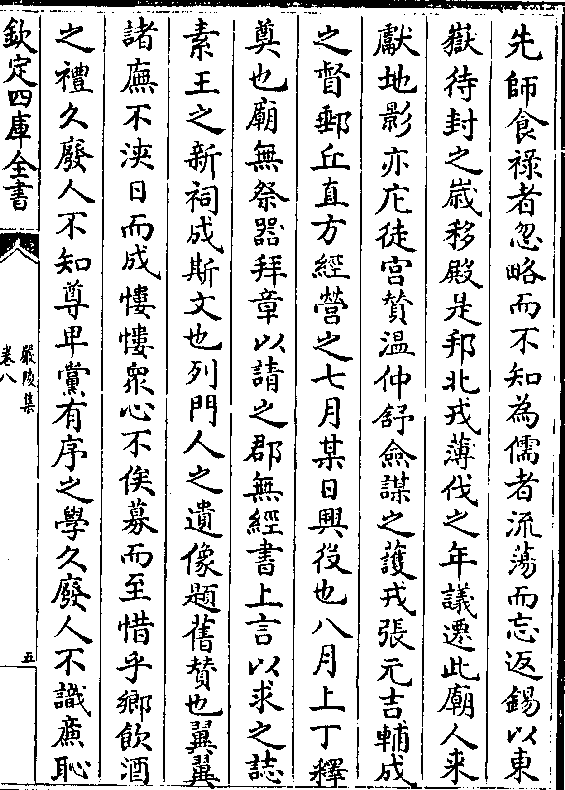 先師食祿者忽略而不知為儒者流蕩而忘返錫以東
嶽待封之歲移殿是邦北戎薄伐之年議遷此廟人来
獻地影亦庀徒宫賛温仲舒僉謀之護戎張元吉輔成
之督郵丘直方經營之七月某日興役也八月上丁釋
奠也廟無祭器拜章以請之郡無經書上言以求之誌
素王之新祠成斯文也列門人之遺像題舊賛也翼翼
諸廡不浹日而成慺慺衆心不俟募而至惜乎鄉飲酒
之禮久廢人不知尊卑黨有序之學久廢人不識亷恥
欽定四庫全書
嚴陵集
卷八
五